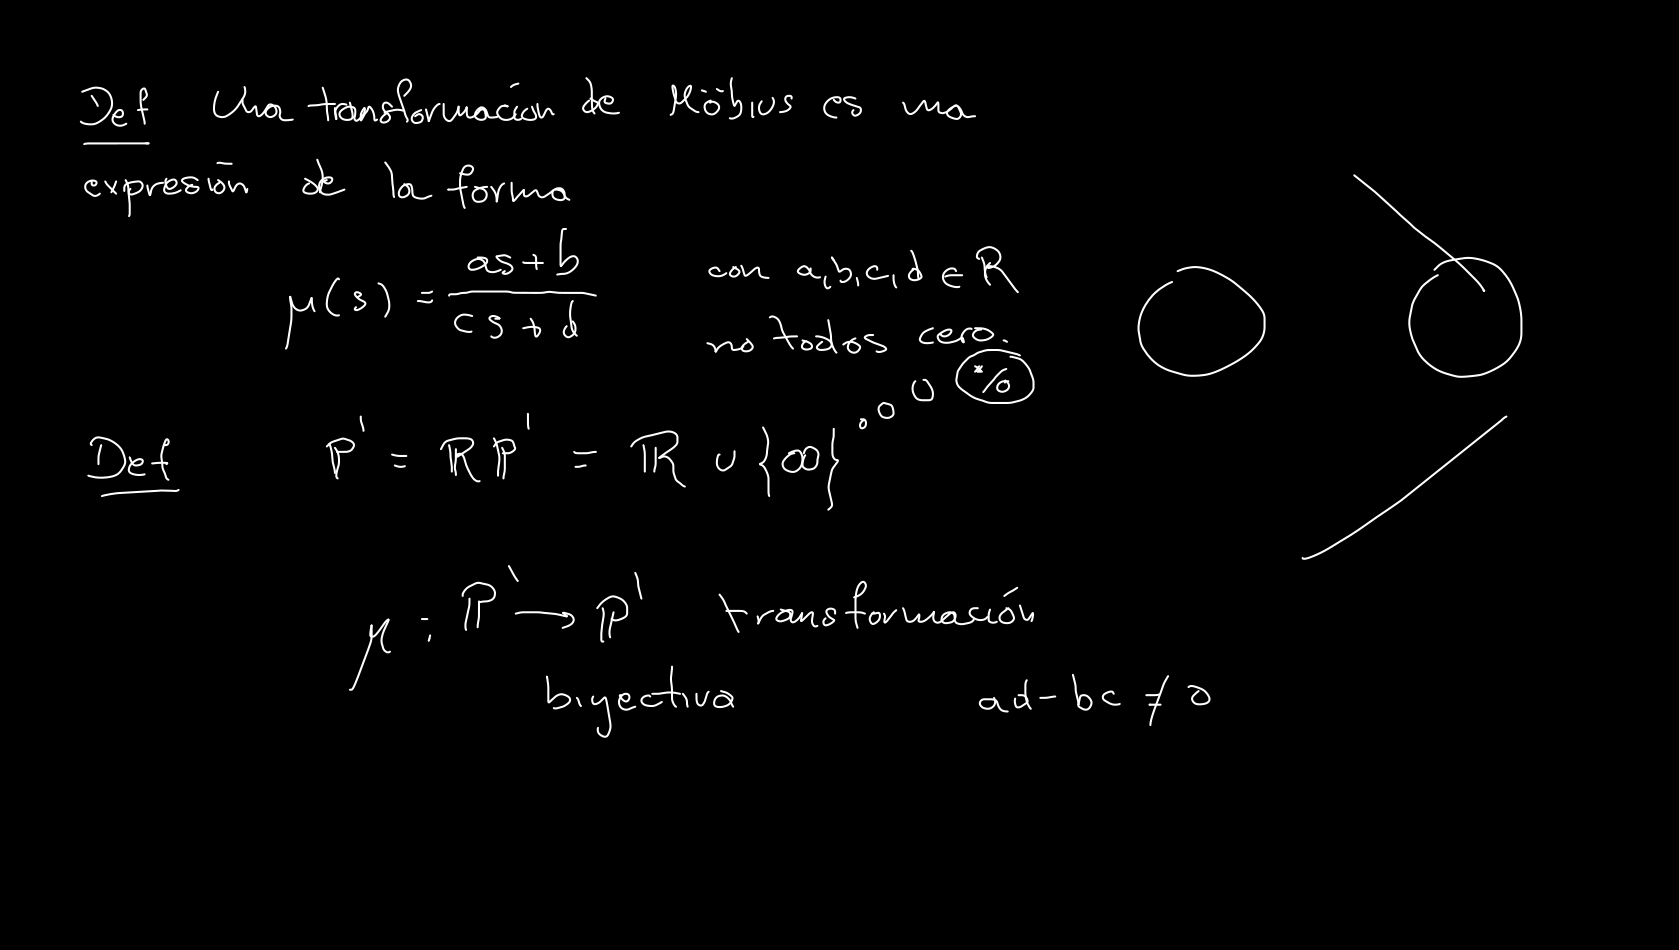 Def Una transformación de Möbius es una
expresión de la forma
μ(s) = as+b / cs+d con a,b,c,d ∈ R
no todos cero.
*/0
Def P¹ = RP¹ = R ∪ {∞}
μ : P¹ → P¹ transformación
biyectiva ad-bc ≠ 0